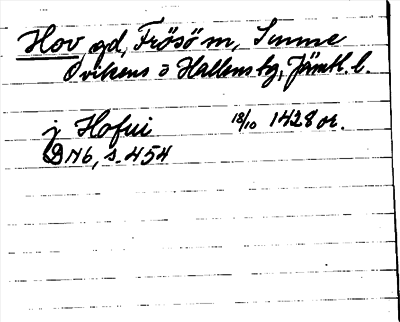 Hov, gd, Frösö sn, Sunne
Ovikens o Hallens tg, Jämtl. l.
j Hofui 18/10 1428 or.
DN 6, s. 454